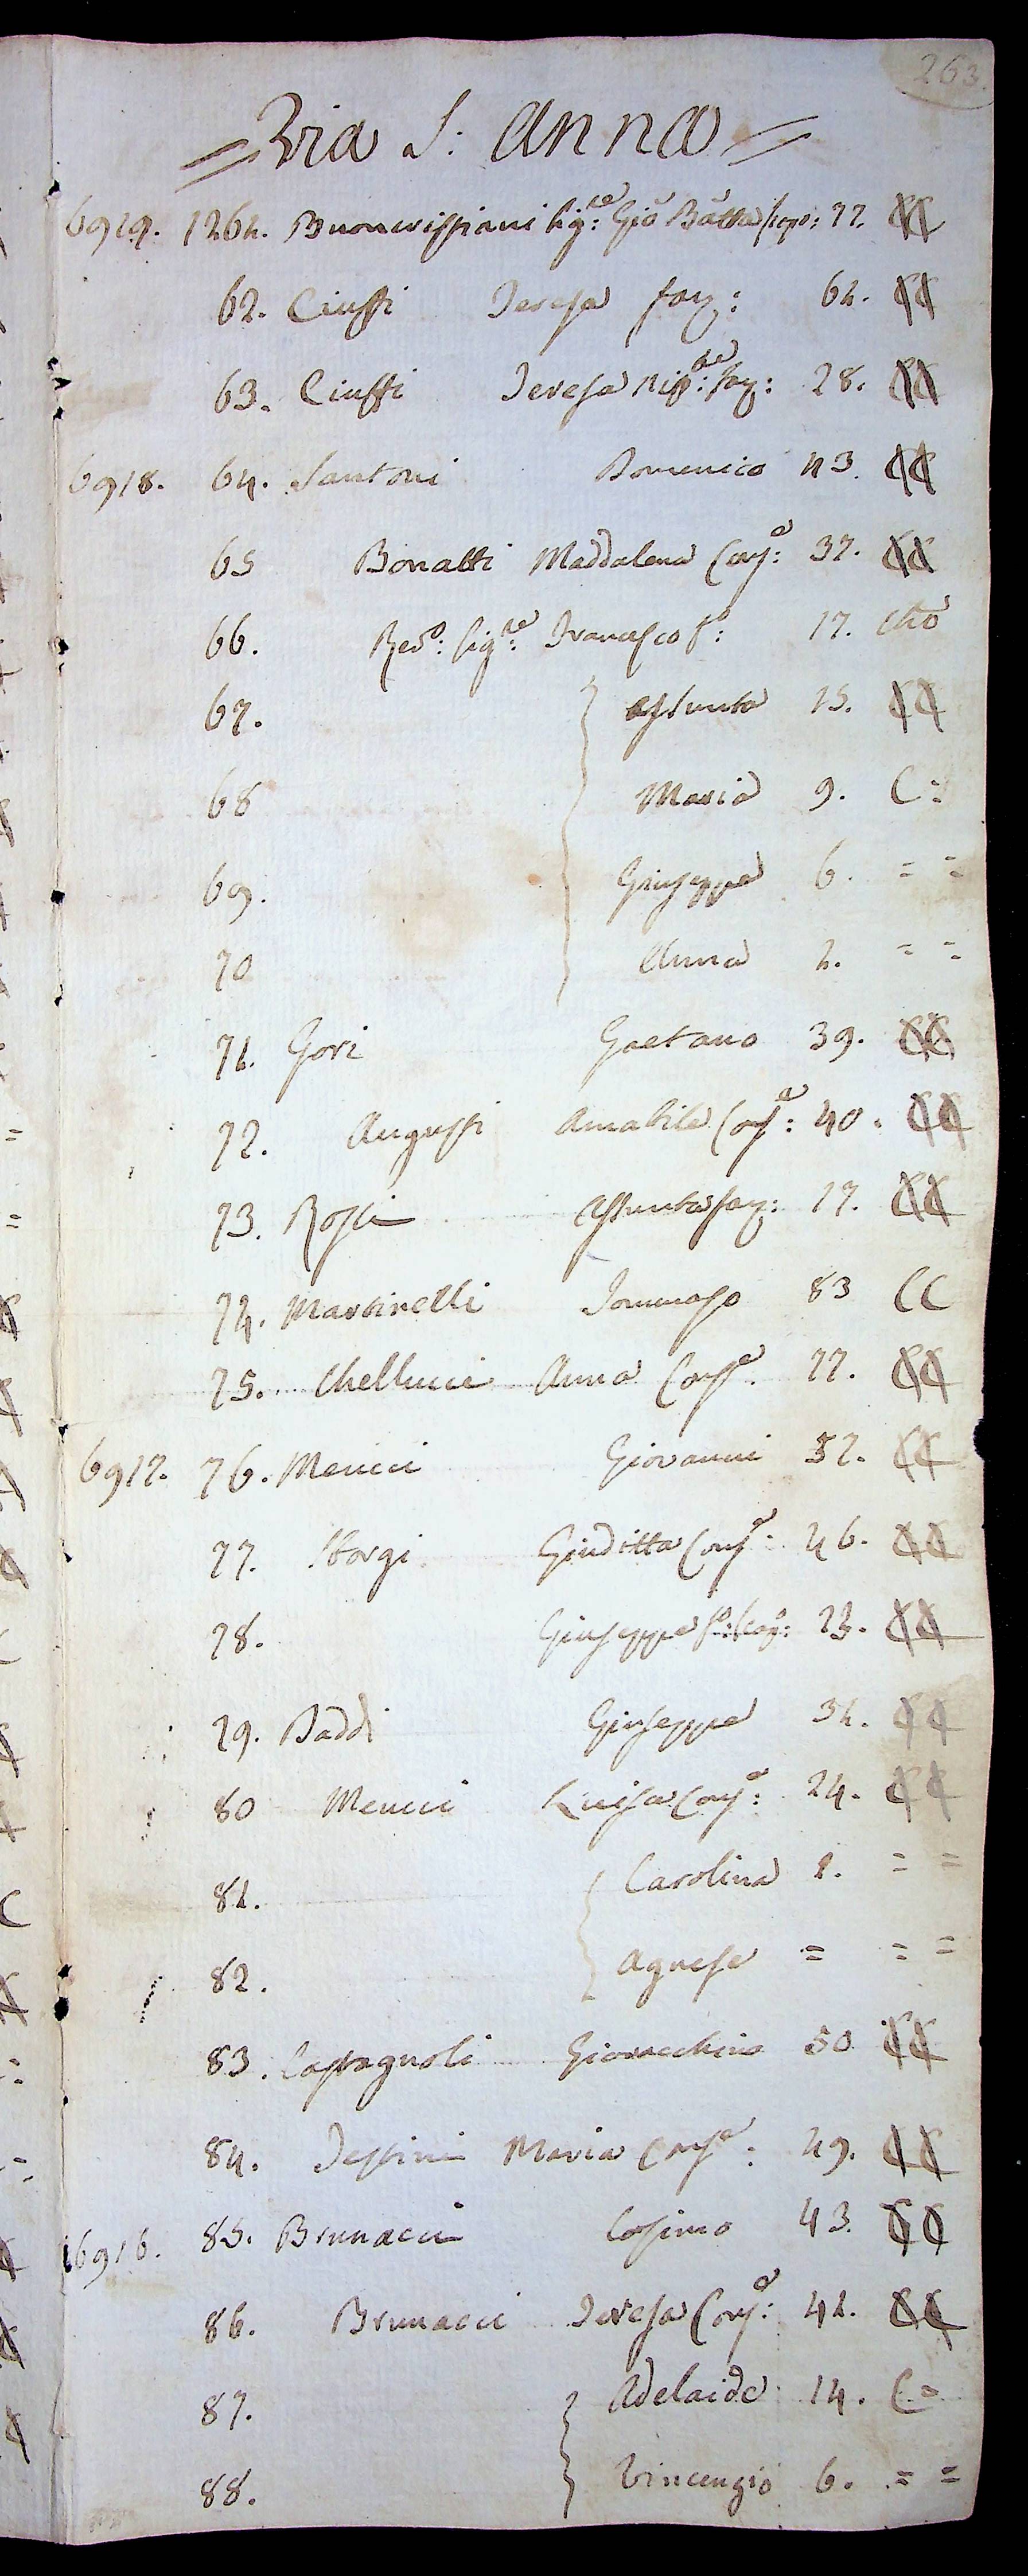 263.
= Via S: Anna =
6919. 1261. Buoncristiani Sig:re Gio Batta scapo: 77. CC
62. Ciuffi Teresa faz: 61. CC
63. Ciuffi Teresa Nip:te faz: 28. CC
6918. 64. Santoni Domenico 43. CC
65 Bonatti Maddalena Cons:e 37. CC
66. Red:o Sig:re Francesco f:o 17. Cho
67. Assunta 15. CC
68 Maria 9. C =
69. Giuseppe 6. = =
70 Anna 1. = =
71. Gori Gaetano 39. CC
72. Augusti Amabile Cons:e 40. CC
73. Rossi Assunta faz: 17. CC
74. Martinelli Tommaso 83 CC
75. Chellucci Anna Cons:e 77. CC
6917. 76. Meucci Giovanni 52. CC
77. Storgi Giuditta Cons:e 46. CC
78. Giuseppe f:o scap:o 23. CC
79. Baddi Giuseppe 31. CC
80 Meucci Luisa Cons:e 24. CC
81. Carolina 2. = =
82. Agnese = = =
83. Castagnoli Giovacchino 50 CC
84. Testini Maria Cons:e 49. CC
6916. 85. Brunacci Cosimo 43. CC
86. Brunacci Teresa Cons:e 41. CC
87. Adelaide 14. C =
88. Vincenzio 6. = =